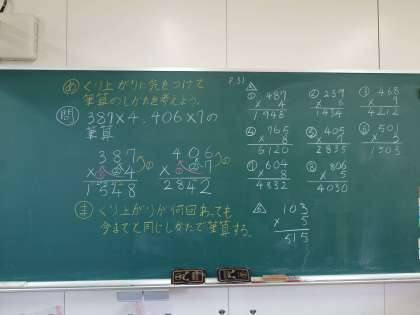 め くり上がりに気をつけて
筆算のしかたを考えよう。
問 387×4、406×7の
筆算
387
× 4
1548
406
× 7
2842
ま くり上がりが何回あっても
今までと同じしかたで筆算する。
P.31
① 487
× 4
1948
② 239
× 6
1434
③ 468
× 9
4212
④ 765
× 8
6120
⑤ 405
× 7
2835
⑥ 501
× 3
1503
⑦ 604
× 8
4832
⑧ 806
× 5
4030
103
× 5
515